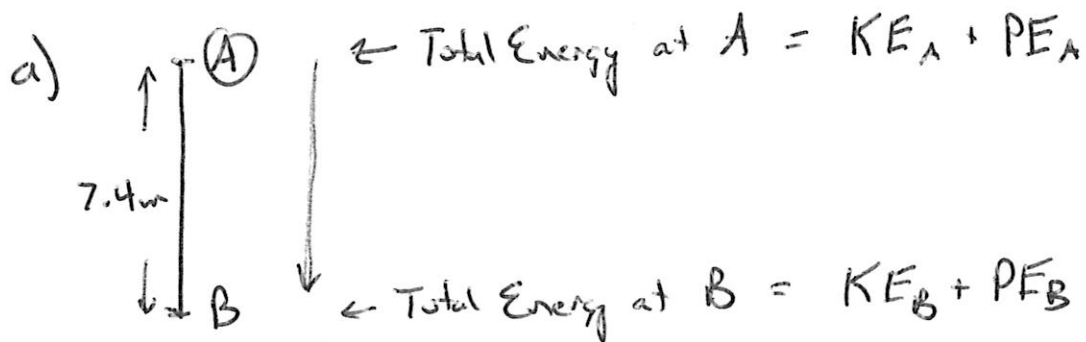 a) A ← Total Energy at A = KE_A + PE_A
7.4m
B ← Total Energy at B = KE_B + PE_B